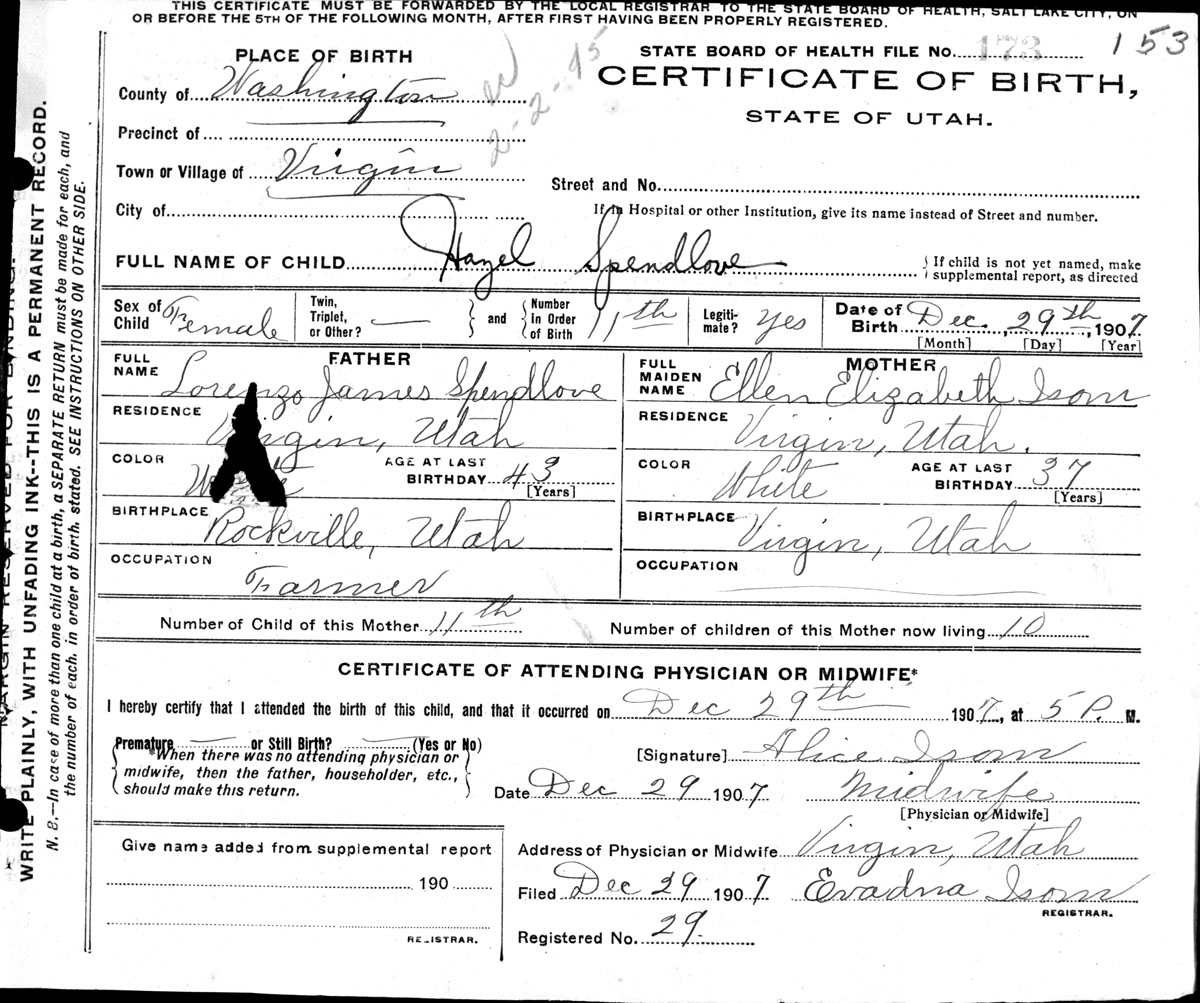 THIS CERTIFICATE MUST BE FORWARDED BY THE LOCAL REGISTRAR TO THE STATE BOARD OF HEALTH, SALT LAKE CITY, ON
OR BEFORE THE 5TH OF THE FOLLOWING MONTH, AFTER FIRST HAVING BEEN PROPERLY REGISTERED.
STATE BOARD OF HEALTH FILE NO. 173 153
PLACE OF BIRTH
CERTIFICATE OF BIRTH,
STATE OF UTAH.
County of Washington
2-2-15
Precinct of
Town or Village of Virgin
Street and No.
City of
If in Hospital or other Institution, give its name instead of Street and number.
FULL NAME OF CHILD Hazel Spendlove
If child is not yet named, make
supplemental report, as directed
Sex of Child Female
Twin, Triplet, or Other? —
and
Number in Order of Birth 11th
Legiti-mate? Yes
Date of Birth Dec. 29th, 1907
[Month] [Day] [Year]
FATHER
FULL NAME Lorenzo James Spendlove
RESIDENCE Virgin, Utah
COLOR White AGE AT LAST BIRTHDAY 43 [Years]
BIRTHPLACE Rockville, Utah
OCCUPATION Farmer
MOTHER
FULL MAIDEN NAME Ellen Elizabeth Isom
RESIDENCE Virgin, Utah.
COLOR White AGE AT LAST BIRTHDAY 37 [Years]
BIRTHPLACE Virgin, Utah
OCCUPATION
Number of Child of this Mother 11th Number of children of this Mother now living 10
CERTIFICATE OF ATTENDING PHYSICIAN OR MIDWIFE*
I hereby certify that I attended the birth of this child, and that it occurred on Dec 29th 1907, at 5 P. M.
Premature — or Still Birth? — (Yes or No)
*When there was no attending physician or
midwife, then the father, householder, etc.,
should make this return.
[Signature] Alice Isom
Date Dec 29 1907 Midwife
[Physician or Midwife]
Give name added from supplemental report
190
REGISTRAR.
Address of Physician or Midwife Virgin, Utah
Filed Dec 29 1907 Evadna Isom
REGISTRAR.
Registered No. 29.
MARGIN RESERVED FOR BINDING.
WRITE PLAINLY, WITH UNFADING INK--THIS IS A PERMANENT RECORD.
N. B.—In case of more than one child at a birth, a SEPARATE RETURN must be made for each, and
the number of each, in order of birth, stated. SEE INSTRUCTIONS ON OTHER SIDE.